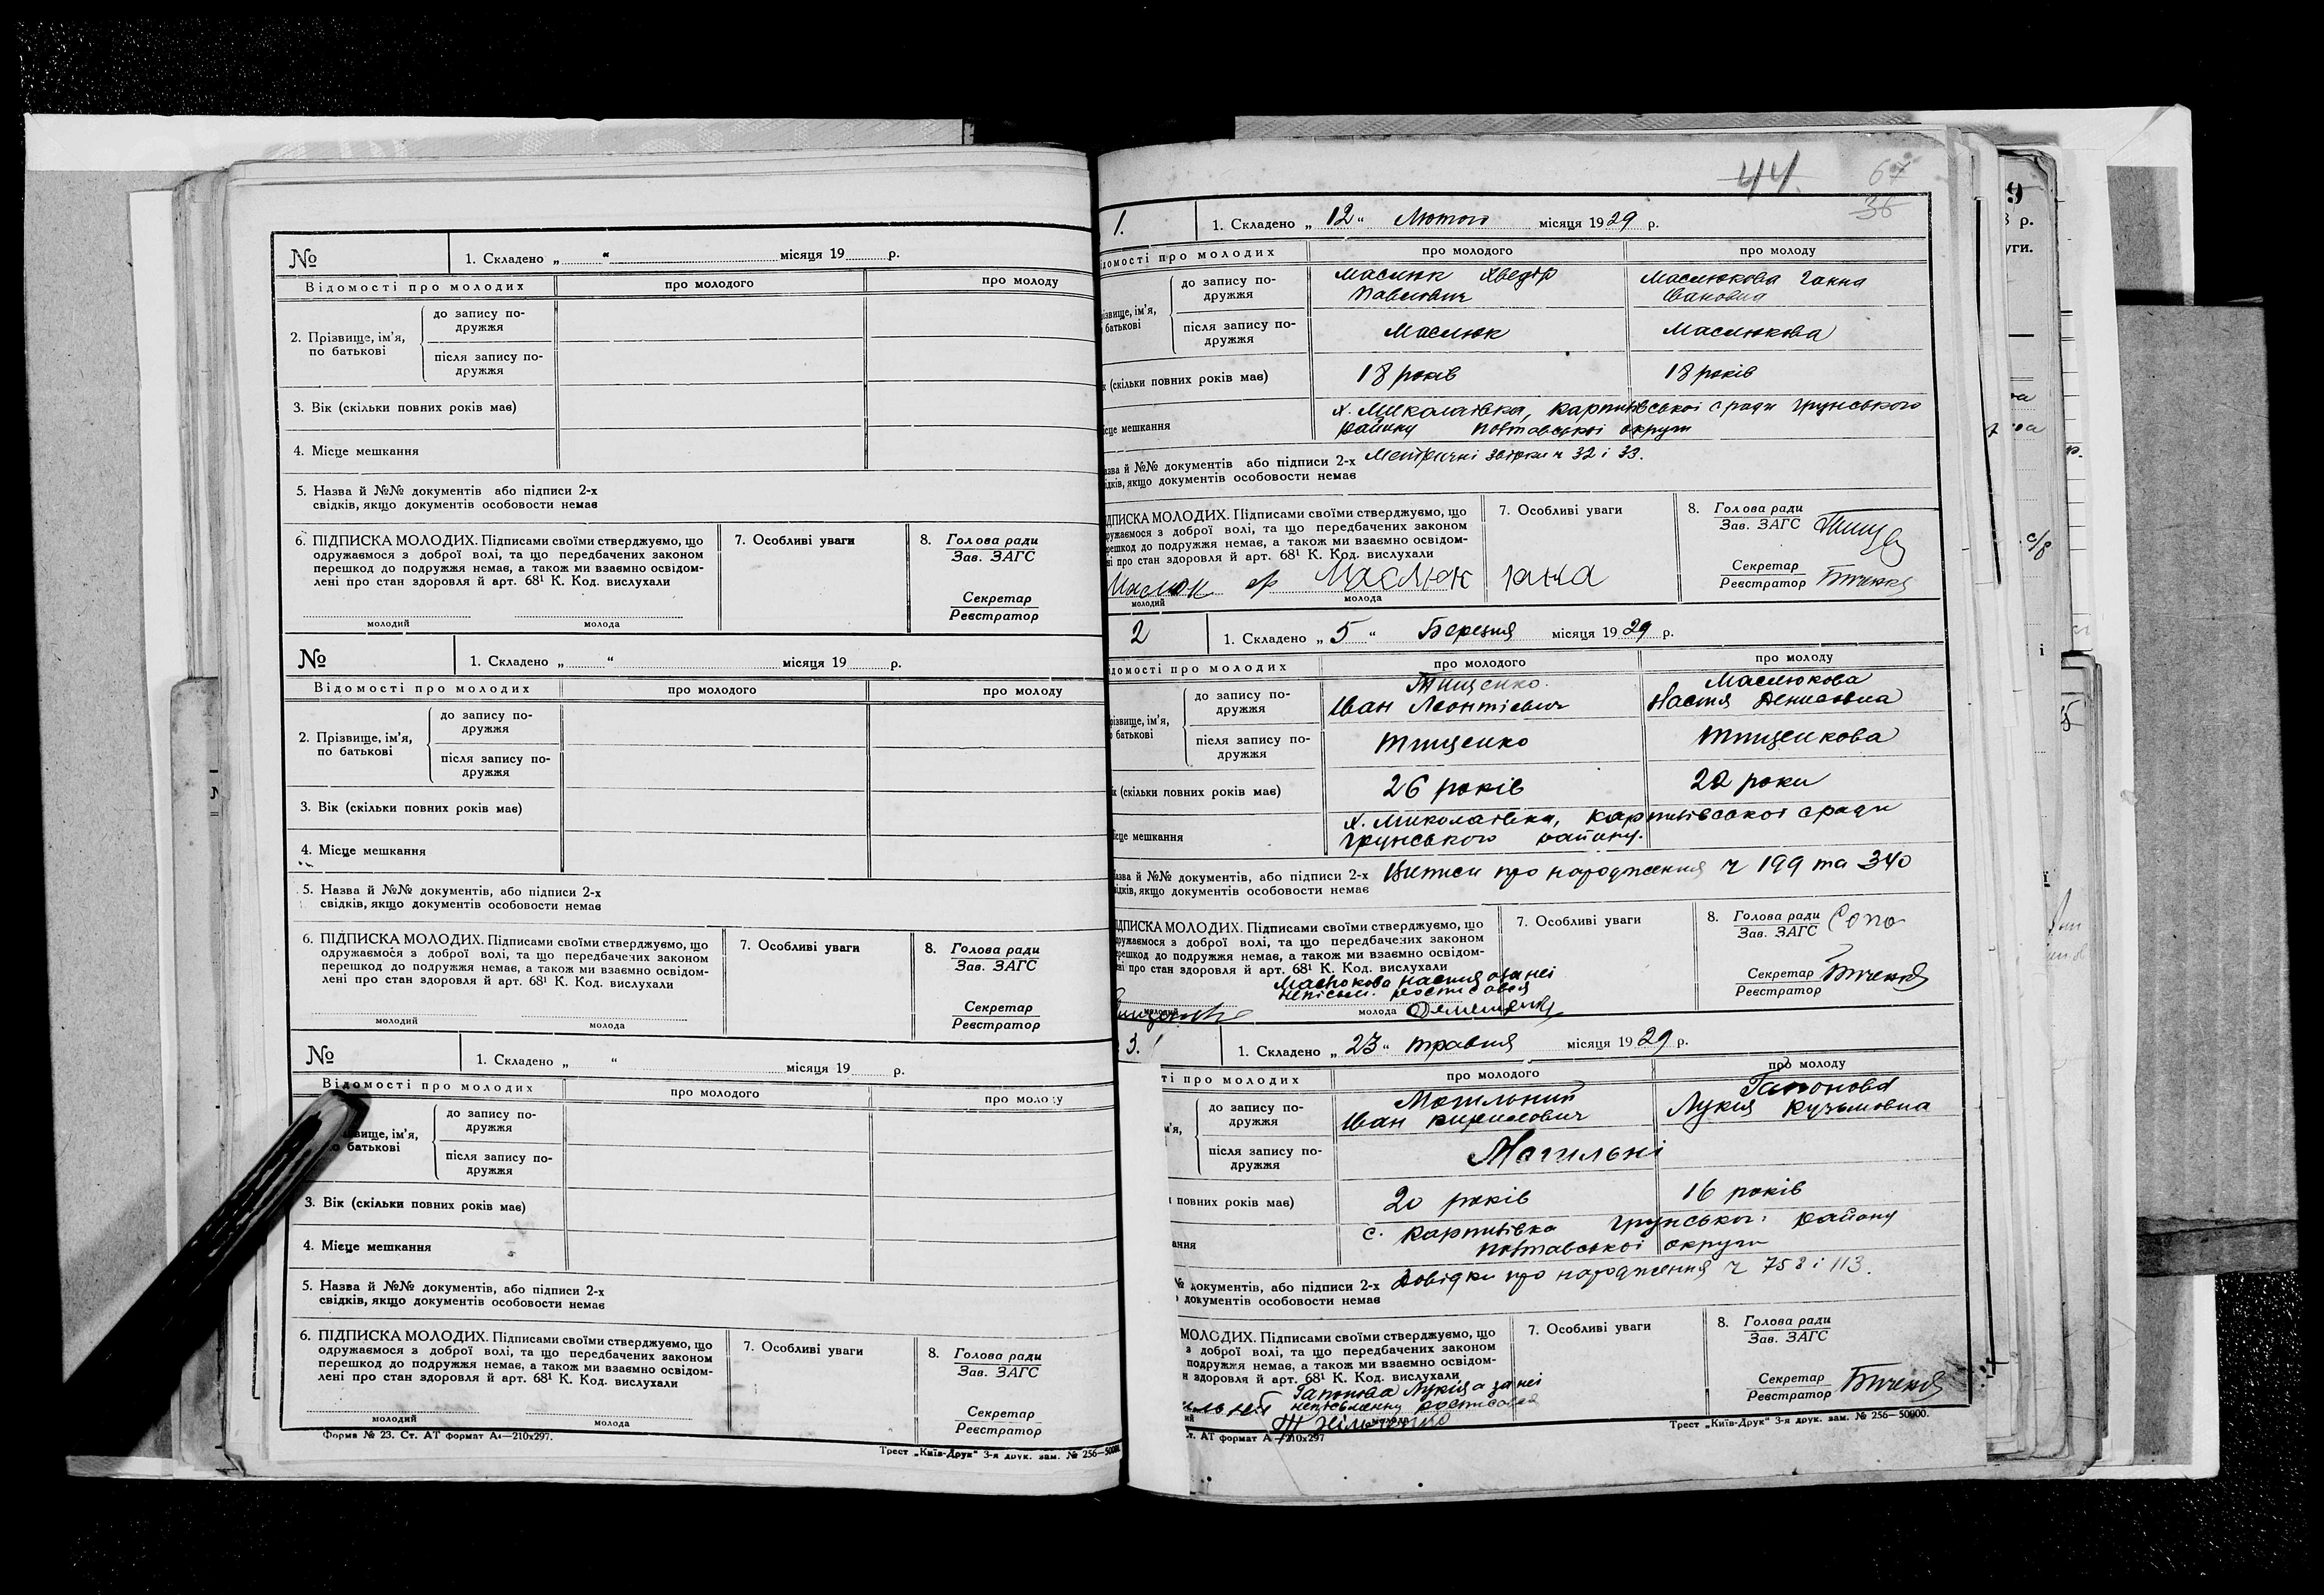 №
1. Складено „ “ місяця 19 р.
Відомості про молодих
про молодого
про молоду
2. Прізвище, ім’я,
по батькові
до запису по-
дружжя
після запису по-
дружжя
3. Вік (скільки повних років має)
4. Місце мешкання
5. Назва й №№ документів або підписи 2-х
свідків, якщо документів особовости немає
6. ПІДПИСКА МОЛОДИХ. Підписами своїми стверджуємо, що
одружаємося з доброї волі, та що передбачених законом
перешкод до подружжя немає, а також ми взаємно освідом-
лені про стан здоровля й арт. 68¹ К. Код. вислухали
молодий
молода
7. Особливі уваги
8. Голова ради
Зав. ЗАГС
Секретар
Реєстратор
№
1. Складено „ “ місяця 19 р.
Відомості про молодих
про молодого
про молоду
2. Прізвище, ім’я,
по батькові
до запису по-
дружжя
після запису по-
дружжя
3. Вік (скільки повних років має)
4. Місце мешкання
5. Назва й №№ документів, або підписи 2-х
свідків, якщо документів особовости немає
6. ПІДПИСКА МОЛОДИХ. Підписами своїми стверджуємо, що
одружаємося з доброї волі, та що передбачених законом
перешкод до подружжя немає, а також ми взаємно освідом-
лені про стан здоровля й арт. 68¹ К. Код. вислухали
молодий
молода
7. Особливі уваги
8. Голова ради
Зав. ЗАГС
Секретар
Реєстратор
№
1. Складено „ “ місяця 19 р.
Відомості про молодих
про молодого
про молоду
вище, ім’я,
о батькові
до запису по-
дружжя
після запису по-
дружжя
3. Вік (скільки повних років має)
4. Місце мешкання
5. Назва й №№ документів, або підписи 2-х
свідків, якщо документів особовости немає
6. ПІДПИСКА МОЛОДИХ. Підписами своїми стверджуємо, що
одружаємося з доброї волі, та що передбачених законом
перешкод до подружжя немає, а також ми взаємно освідом-
лені про стан здоровля й арт. 68¹ К. Код. вислухали
молодий
молода
7. Особливі уваги
8. Голова ради
Зав. ЗАГС
Секретар
Реєстратор
Форма № 23. Ст. АТ формат А4—210х297.
Трест „Київ-Друк“ 3-я друк. зам. № 256—50000
44.
67
36
1.
1. Складено „12“ Лютого місяця 1929 р.
домості про молодих
про молодого
про молоду
ізвище, ім’я,
батькові
до запису по-
дружжя
Маслюк Хведір
Павлович
Маслюкова Ганна
Івановна
після запису по-
дружжя
Маслюк
Маслюкова
к (скільки повних років має)
18 років
18 років
ісце мешкання
х. Миколаївка, Карпилівської с ради Грунського
району Полтавської округи
азва й №№ документів або підписи 2-х
ідків, якщо документів особовости немає
Метричні ч 32 і 33.
ДПИСКА МОЛОДИХ. Підписами своїми стверджуємо, що
ружаємося з доброї волі, та що передбачених законом
решкод до подружжя немає, а також ми взаємно освідом-
ні про стан здоровля й арт. 68¹ К. Код. вислухали
Маслюк
Маслюк гана
молодий
молода
7. Особливі уваги
8. Голова ради
Зав. ЗАГС
Секретар
Реєстратор
2
1. Складено „5“ Березня місяця 1929 р.
ідомості про молодих
про молодого
про молоду
різвище, ім’я,
о батькові
до запису по-
дружжя
Тищенко.
Іван Леонтієвич
Маслюкова
Настя Денисовна
після запису по-
дружжя
Тищенко
Тищенкова
к (скільки повних років має)
26 років
22 роки
ісце мешкання
х. Миколаївка, Карпилівської с ради
Грунського району.
азва й №№ документів, або підписи 2-х
відків, якщо документів особовости немає
Виписи про народження ч 199 та 340
ІДПИСКА МОЛОДИХ. Підписами своїми стверджуємо, що
дружаємося з доброї волі, та що передбачених законом
решкод до подружжя немає, а також ми взаємно освідом-
ені про стан здоровля й арт. 68¹ К. Код. вислухали
Маслюкова Настия а за неї
неписьм. росписався
молодий
молода
7. Особливі уваги
8. Голова ради
Зав. ЗАГС
Секретар
Реєстратор
3.
1. Складено „23“ травня місяця 1929 р.
ті про молодих
про молодого
про молоду
м’я,
до запису по-
дружжя
Могильний
Іван Кирилович
Гапонова
Лукія Кузьмовна
після запису по-
дружжя
Могильні
повних років має)
20 років
16 років
ання
с. Карпилівка Грунського району
Полтавської округи
№ документів, або підписи 2-х
документів особовости немає
Довідки про народження ч 758 і 113.
МОЛОДИХ. Підписами своїми стверджуємо, що
з доброї волі, та що передбачених законом
подружжя немає, а також ми взаємно освідом-
н здоровля й арт. 68¹ К. Код. вислухали
Гапонова Лукія а за неї
неписьменну росписався
7. Особливі уваги
8. Голова ради
Зав. ЗАГС
Секретар
Реєстратор
т. АТ формат А—210х297
Трест „Київ-Друк“ 3-я друк. зам. № 256—50000.